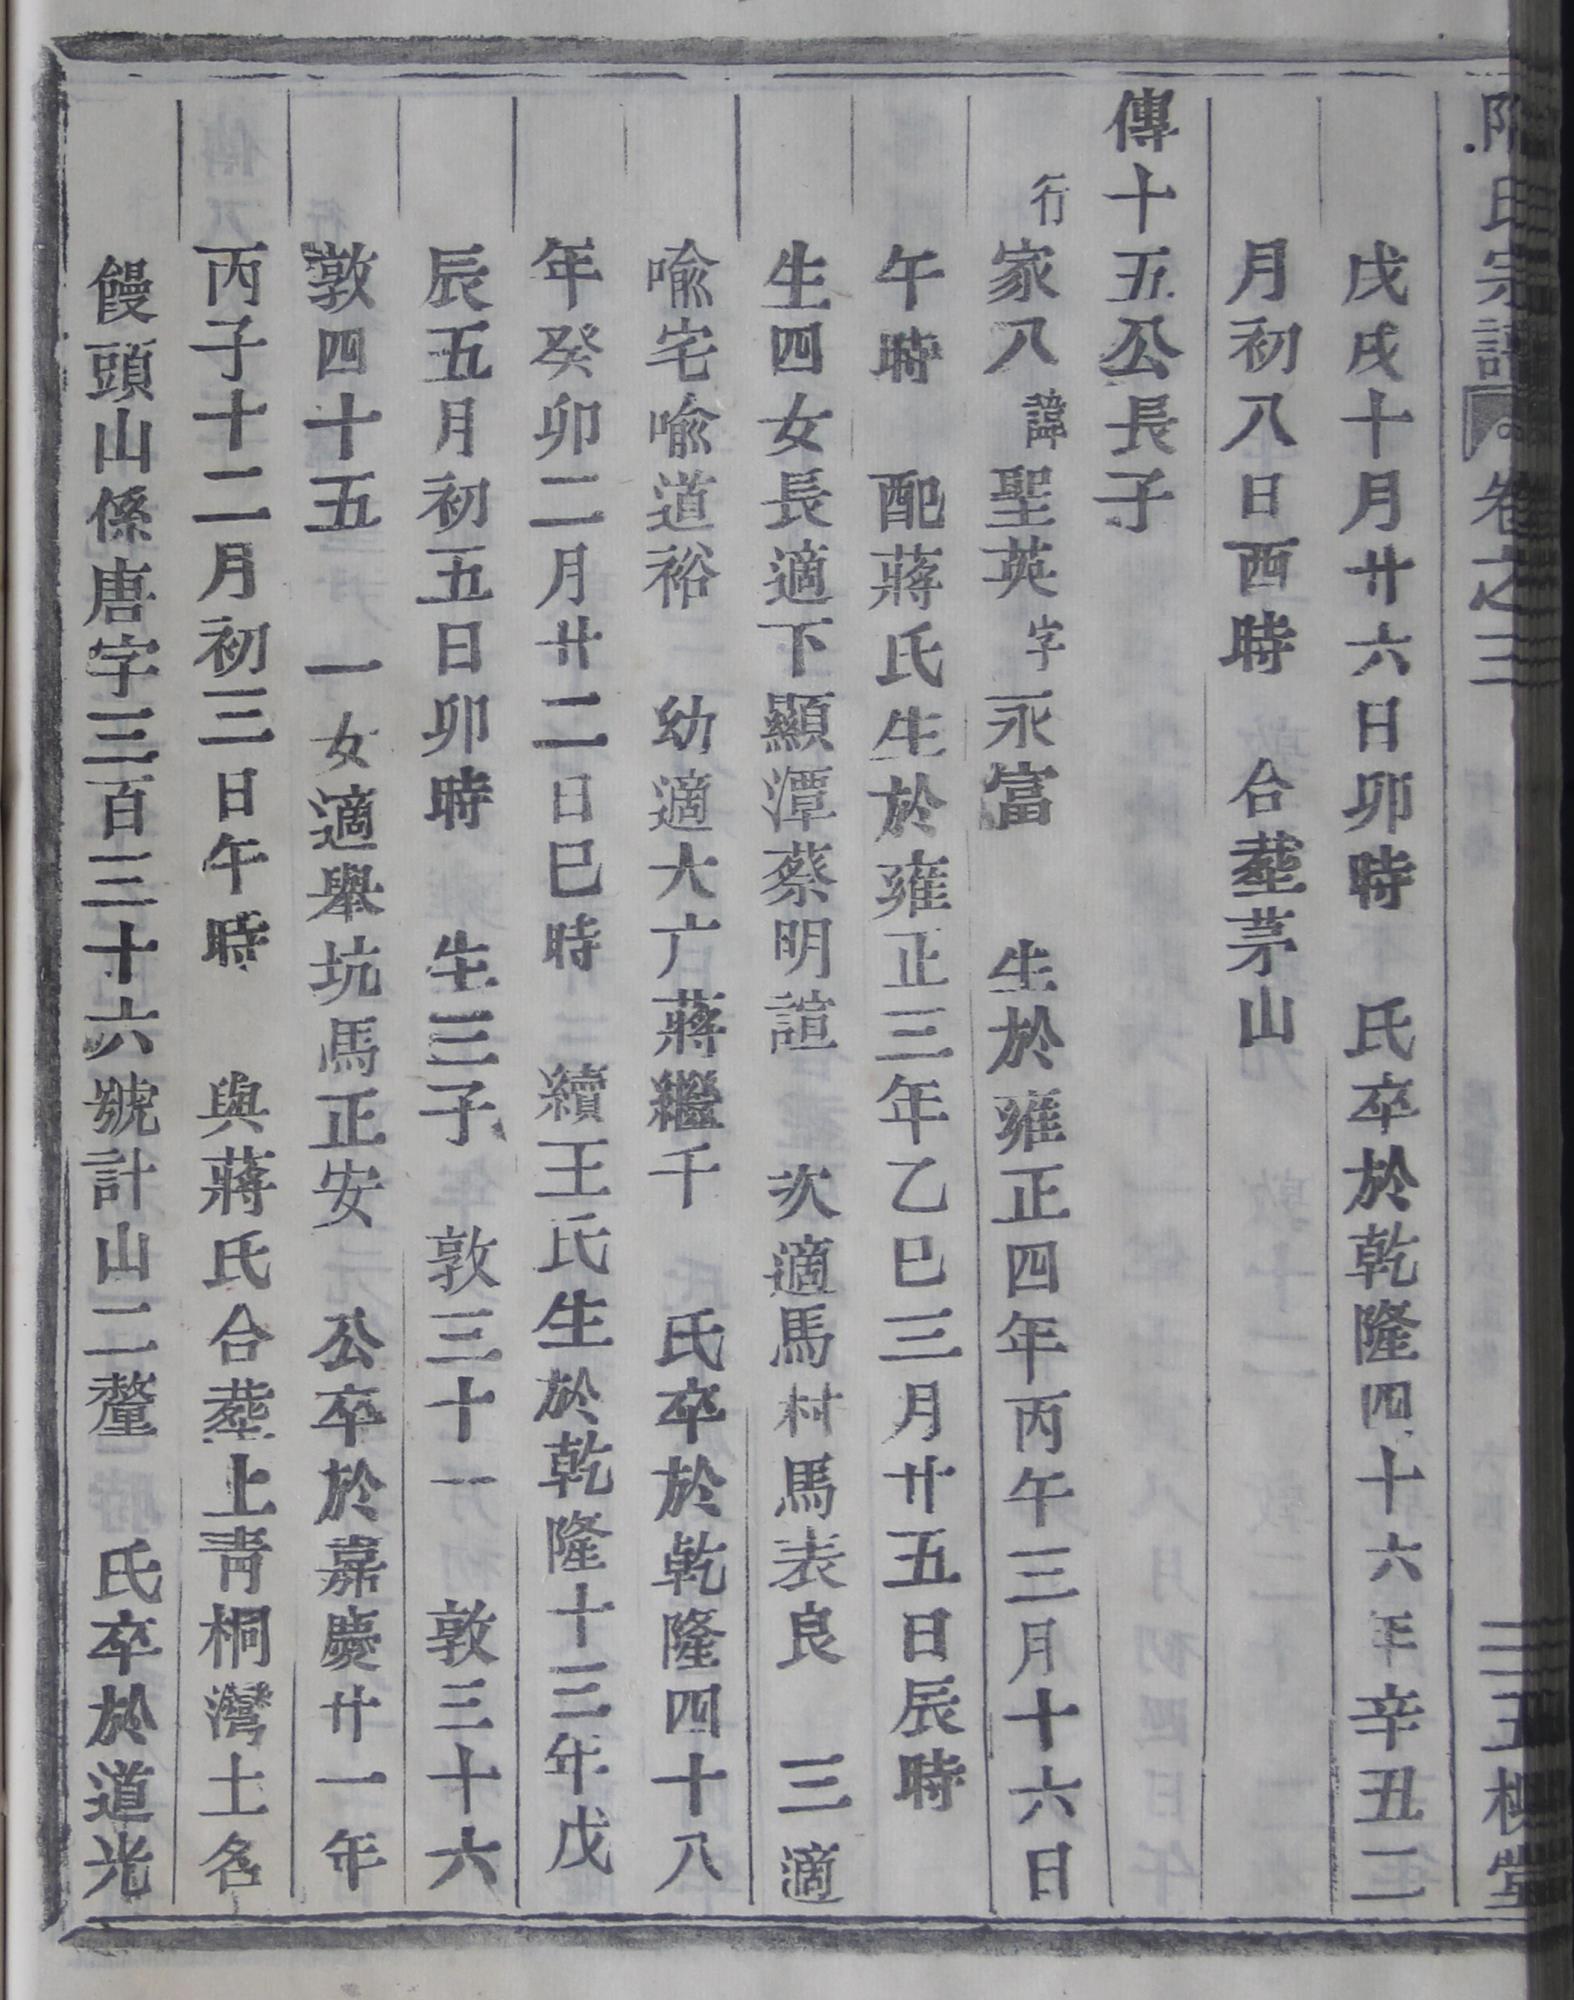 氏宗譜 卷之三 三五槐堂
戊戌十月廿六日卯時 氏卒於乾隆四十六年辛丑二
月初八日酉時 合塟茅山
傳十五公長子
行家八諱聖英字永富 生於雍正四年丙午三月十六日
午時 配蔣氏生於雍正三年乙巳三月廿五日辰時
生四女長適下顯潭蔡明諠 次適馬村馬表良 三適
喩宅喩道裕 幼適大广蔣繼千 氏卒於乾隆四十八
年癸卯二月廿二日巳時 續王氏生於乾隆十三年戊
辰五月初五日卯時 生三子 敦三十一 敦三十六
敦四十五 一女適舉坑馬正安 公卒於嘉慶廿一年
丙子十二月初三日午時 與蔣氏合塟上靑桐灣土名
饅頭山係唐字三百三十六號計山二釐 氏卒於道光